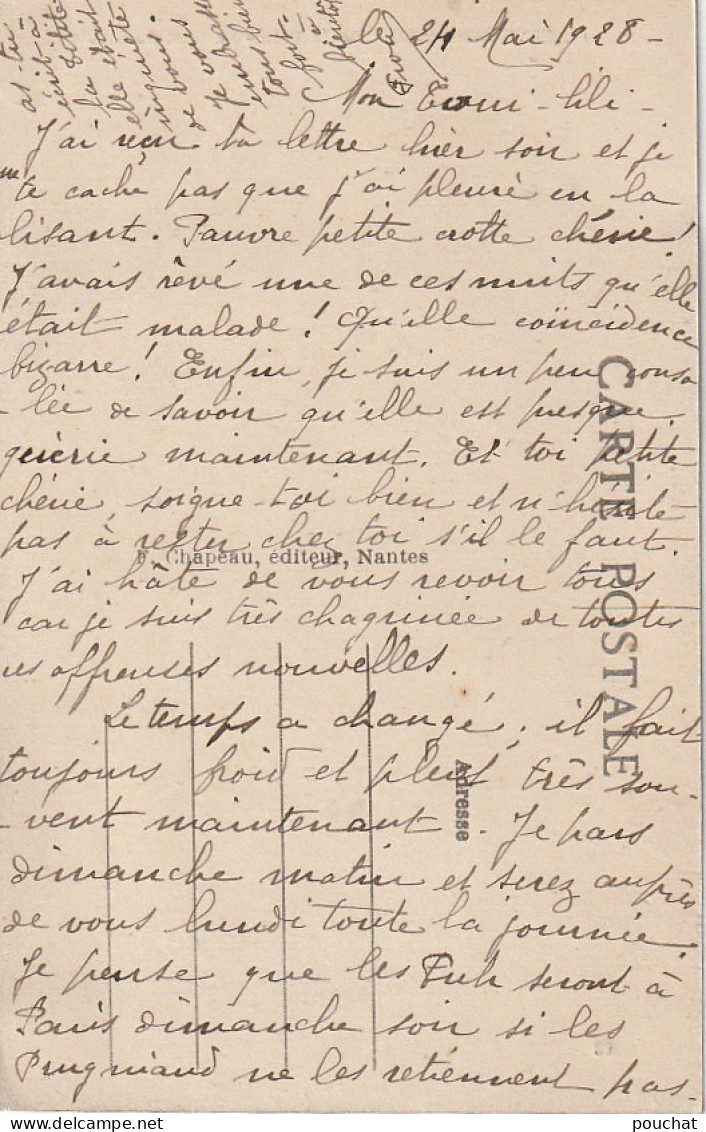 le 24 Mai 1928 -
Mon -lili -
J'ai reçu ta lettre hier soir et je
ne te cache pas que j'ai pleuré en la
lisant. Pauvre petite crotte chérie !
J'avais rêvé une de ces nuits qu'elle
était malade ! Qu'elle coïncidence
bizarre ! Enfin, je suis un peu conso
-lée de savoir qu'elle est presque
guérie maintenant. Et toi petite
chérie, soigne-toi bien et n'hésite
pas à rester chez toi s'il le faut.
J'ai hâte de vous revoir tous
car je suis très chagrinée de toutes
ces affreuses nouvelles.
Le temps a changé, il fait
toujours froid et pleut très sou-
-vent maintenant. Je pars
dimanche matin et serez auprès
de vous lundi toute la journée.
Je pense que les Puh seront à
Paris dimanche soir si les
Prugniaud ne les retiennent pas-
as-tu
écrit à
Zélité
la était
elle inquiète
de vous
Je vous
tous bien
fort.
à
bientôt
F. Chapeau, éditeur, Nantes
CARTE POSTALE
Adresse
pouchat